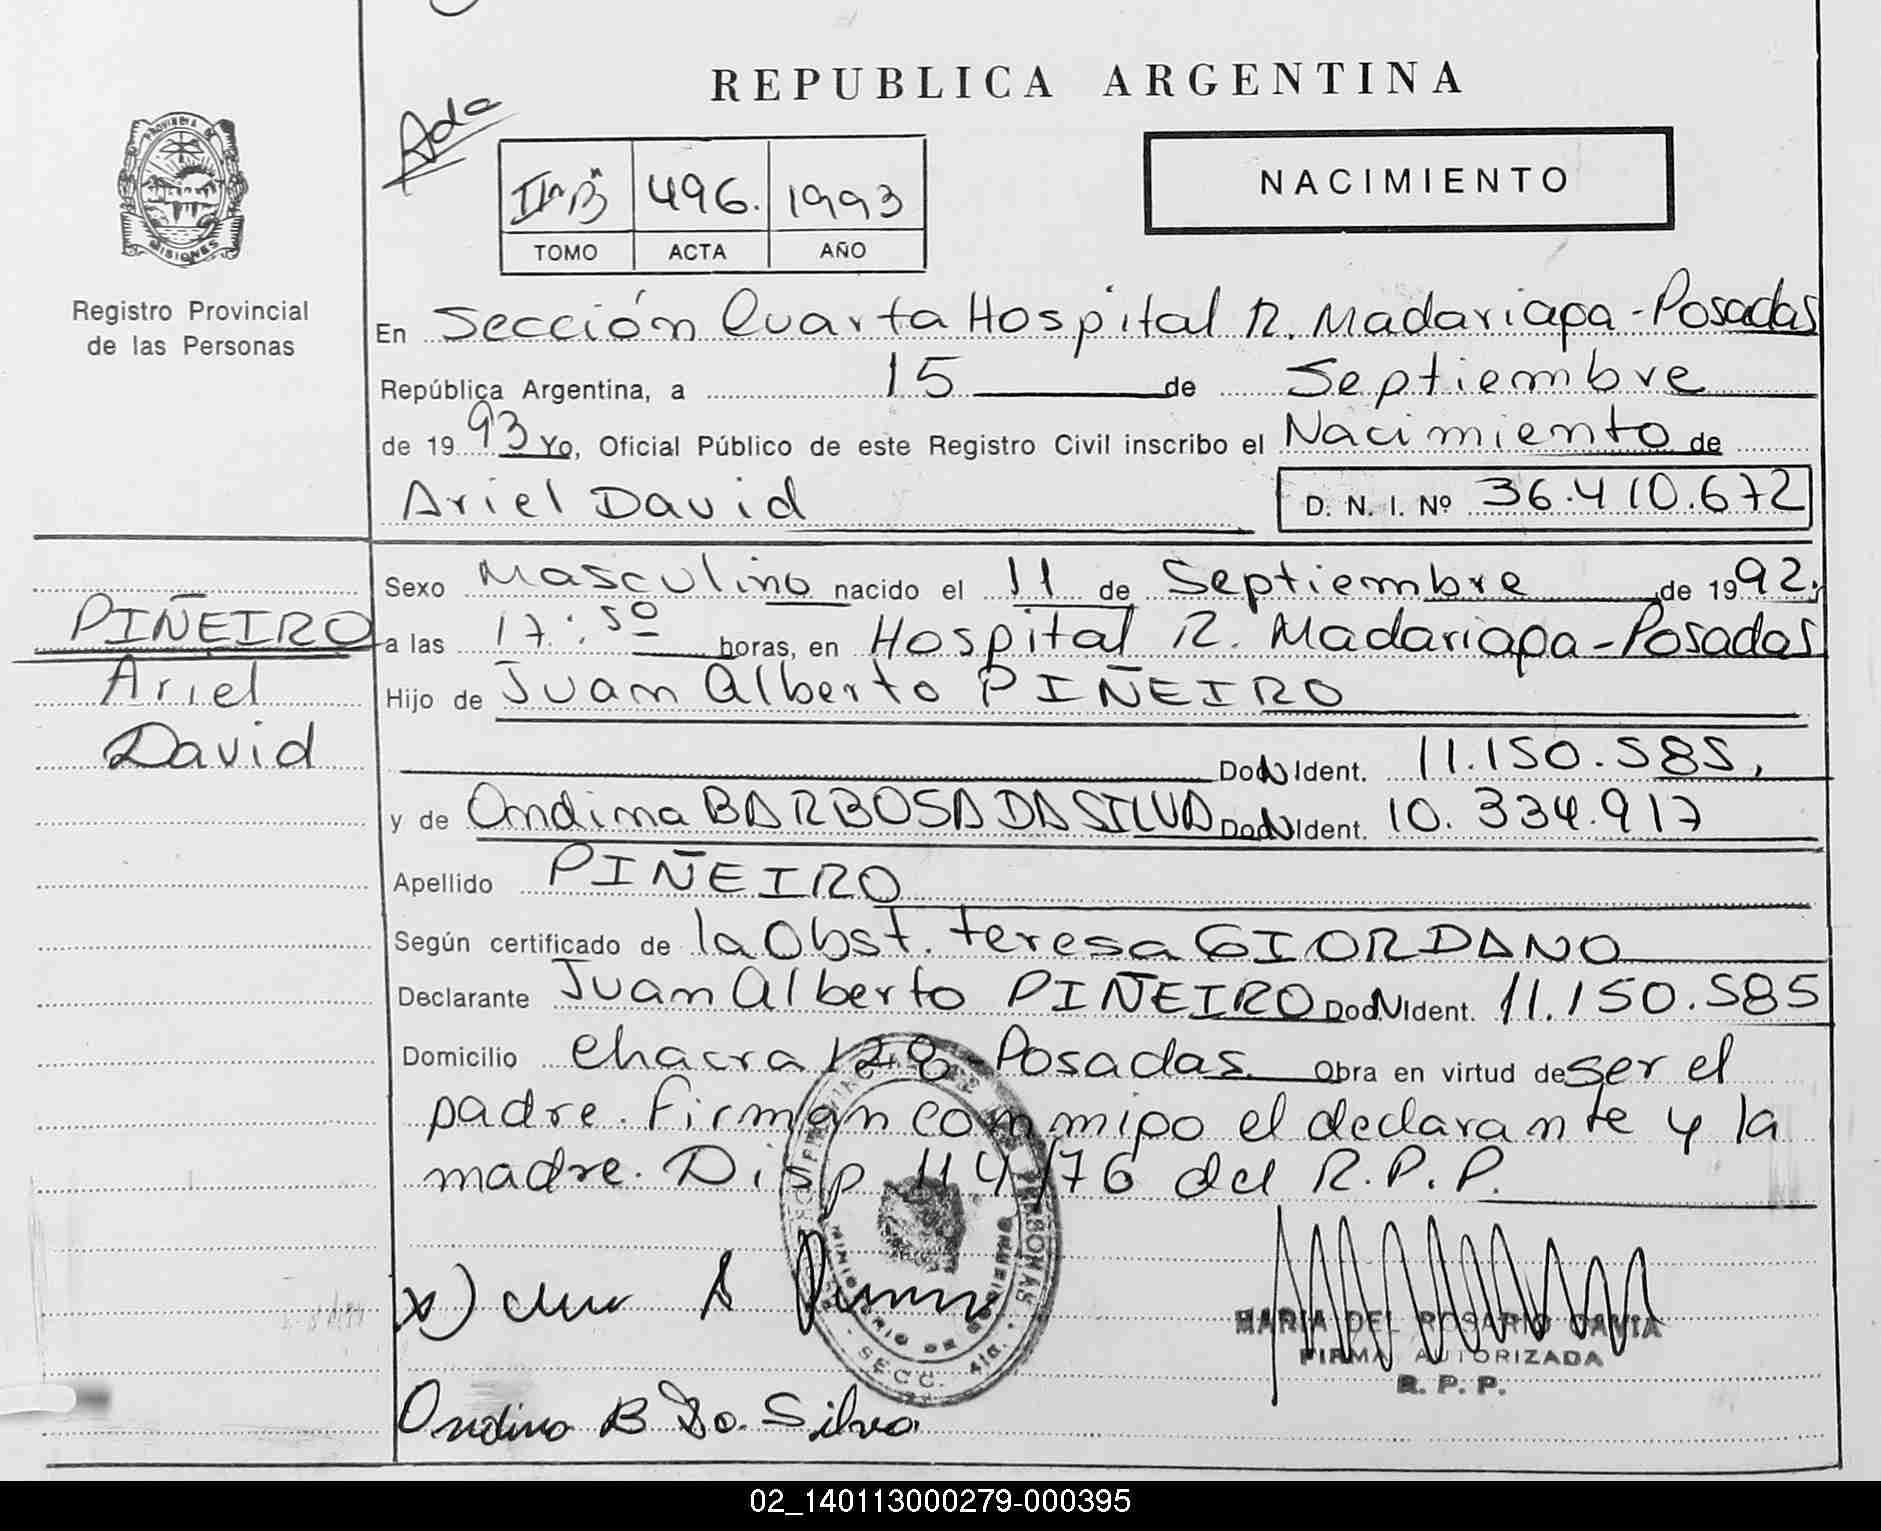 REPUBLICA ARGENTINA
Ada
II "B" 496. 1993
TOMO ACTA AÑO
NACIMIENTO
PROVINCIA DE
MISIONES
Registro Provincial
de las Personas
En Sección Cuarta Hospital R. Madariaga-Posadas
República Argentina, a 15 de Septiembre
de 1993 Yo, Oficial Público de este Registro Civil inscribo el Nacimiento de
Ariel David D. N. I. Nº 36.410.672
Sexo Masculino nacido el 11 de Septiembre de 1992.
PIÑEIRO
Ariel
David
a las 17:50 horas, en Hospital R. Madariaga-Posadas
Hijo de Juan Alberto PIÑEIRO
Doc Ident. 11.150.585,
y de Ondina BARBOSA DA SILVA Doc Ident. 10.334.917
Apellido PIÑEIRO
Según certificado de la Obst. Teresa GIORDANO
Declarante Juan Alberto PIÑEIRO Doc Ident. 11.150.585
Domicilio Chacra 128 Posadas. Obra en virtud de ser el
padre. Firman conmigo el declarante y la
madre. Disp 114/76 del R.P.P.
x)
MINISTERIO DE GOBIERNO
SECC. 4ta.
MARIA DEL ROSARIO
FIRMA AUTORIZADA
R. P. P.
Ondina B Da. Silva
02_140113000279-000395